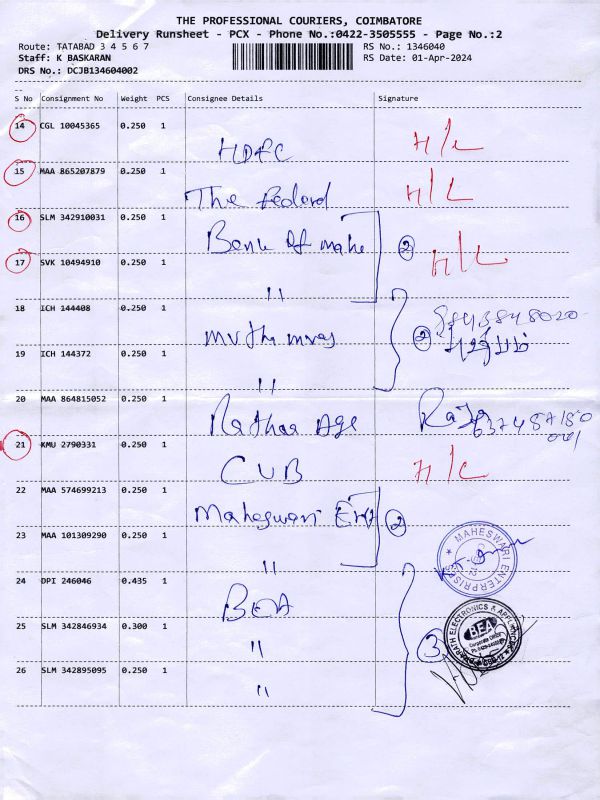 THE PROFESSIONAL COURIERS, COIMBATORE
Delivery Runsheet - PCX - Phone No.:0422-3505555 - Page No.:2
Route: TATABAD 3 4 5 6 7
RS No.: 1346040
Staff: K BASKARAN
RS Date: 01-Apr-2024
DRS No.: DCJB134604002
S No Consignment No Weight PCS Consignee Details Signature
14 CGL 10045365 0.250 1
HDFC H/C
15 MAA 865207879 0.250 1
The Federal H/C
16 SLM 342910031 0.250 1
Bank Of mahe 2
17 SVK 10494910 0.250 1 H/C
"
18 ICH 144408 0.250 1
2
19 ICH 144372 0.250 1
"
20 MAA 864815052 0.250 1
Raja
21 KMU 2790331 0.250 1
CUB H/C
22 MAA 574699213 0.250 1
Maheswari Ent 2
23 MAA 101309290 0.250 1
"
MAHESWARI ENTERPRISES
24 DPI 246046 0.435 1
BEA
25 SLM 342846934 0.300 1
" 3
BEA
26 SLM 342895095 0.250 1
"